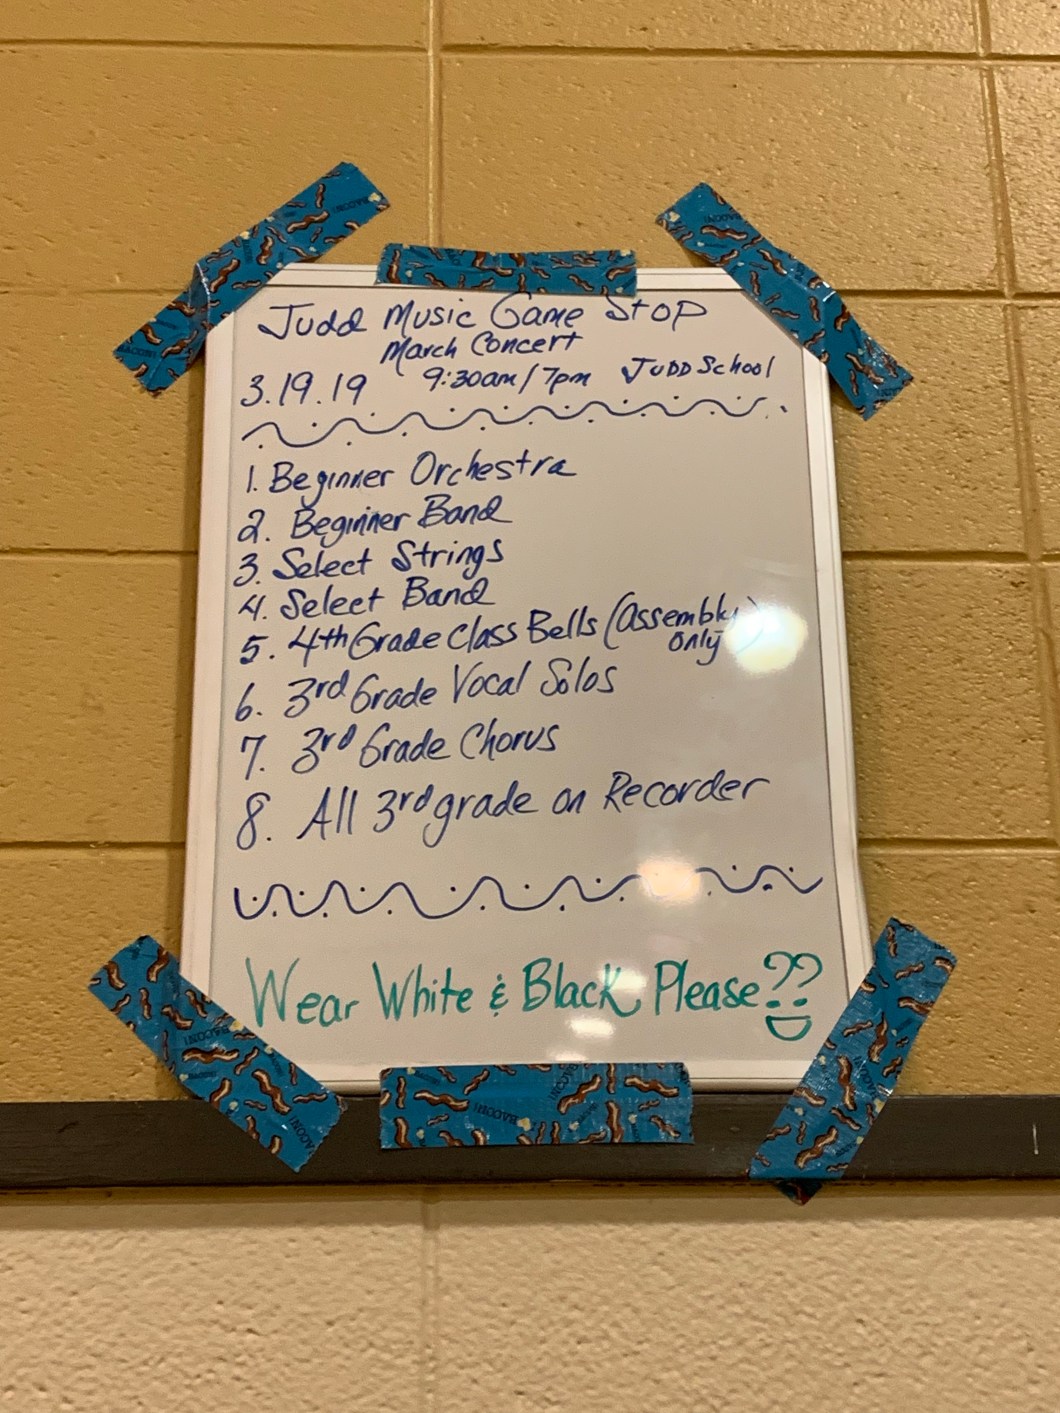 Judd Music Game Stop
March Concert
3.19.19 9:30am/7pm Judd School
1. Beginner Orchestra
2. Beginner Band
3. Select Strings
4. Select Band
5. 4th Grade Class Bells (Assembly
only)
6. 3rd Grade Vocal Solos
7. 3rd Grade Chorus
8. All 3rd grade on Recorder
Wear White & Black Please??
BACON!
BACON!
BACON!
BACON!
BACON!